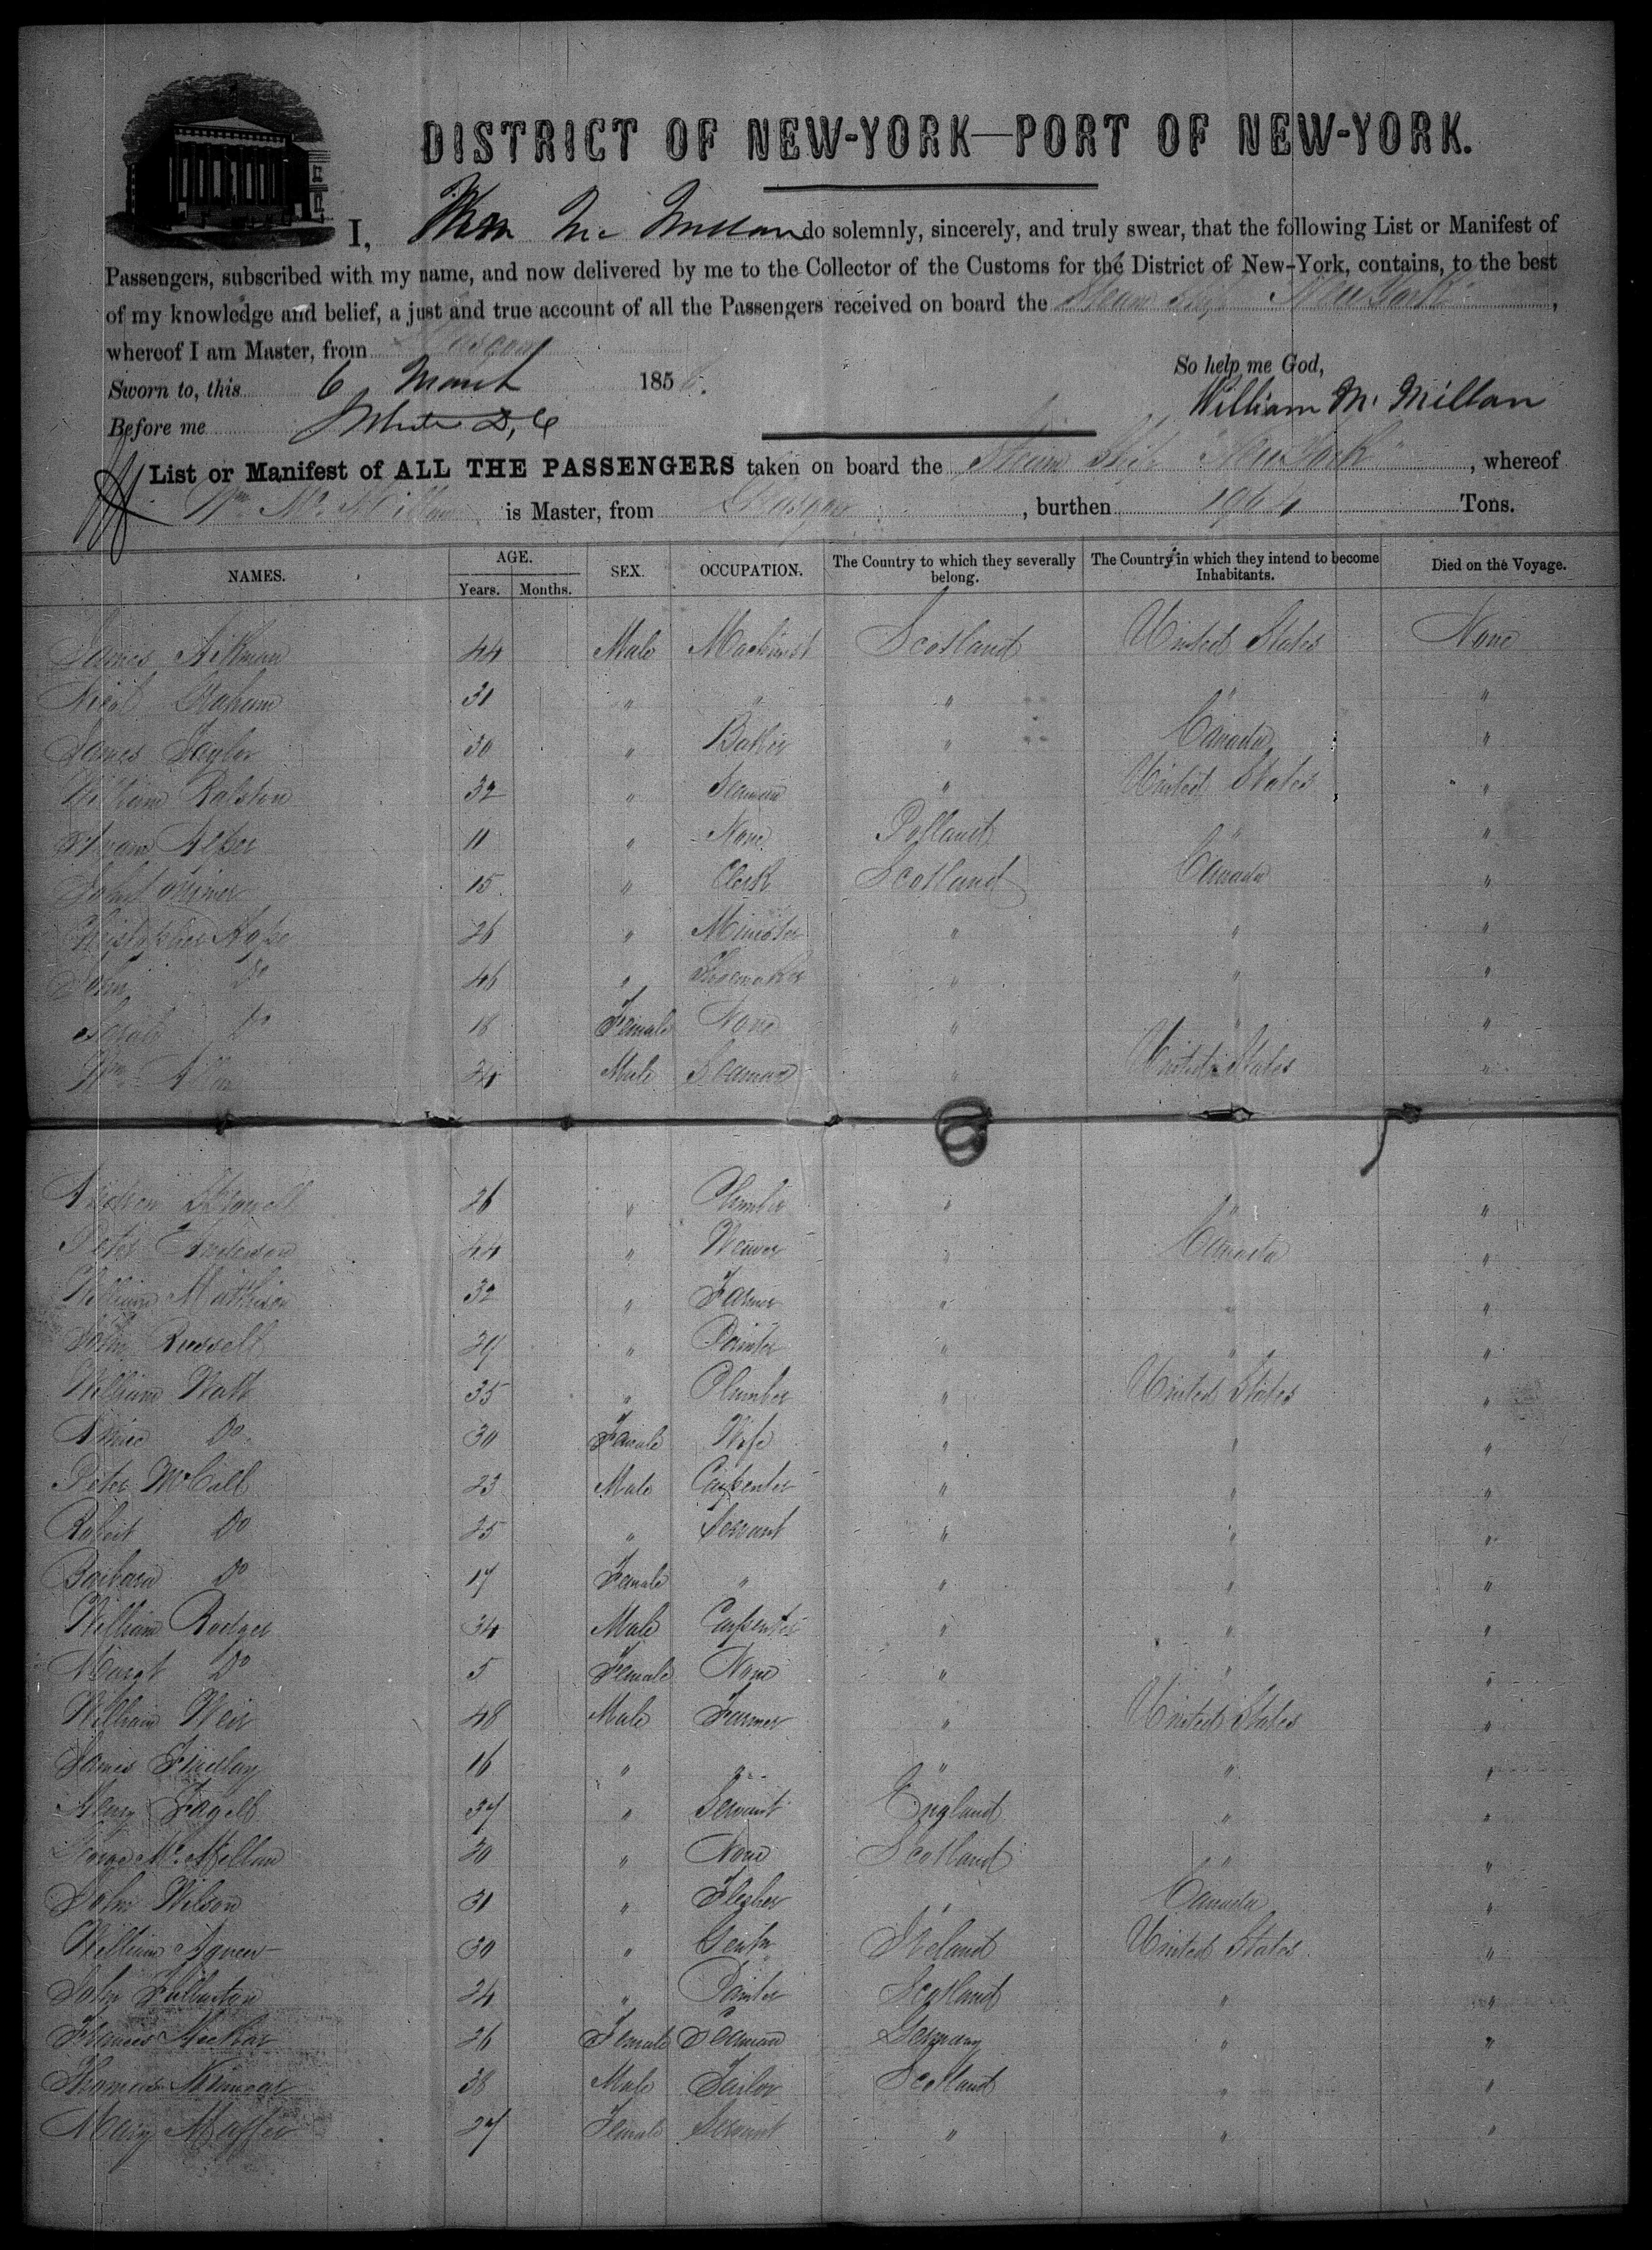 DISTRICT OF NEW-YORK—PORT OF NEW-YORK.
I, Wm Mc Millan do solemnly, sincerely, and truly swear, that the following List or Manifest of
Passengers, subscribed with my name, and now delivered by me to the Collector of the Customs for the District of New-York, contains, to the best
of my knowledge and belief, a just and true account of all the Passengers received on board the Steam Ship "New York",
whereof I am Master, from Glasgow
So help me God,
Sworn to, this 6 March 185
William Mc Millan
Before me White D, C
List or Manifest of ALL THE PASSENGERS taken on board the Steam Ship "New York", whereof
Wm Mc Millan is Master, from Glasgow, burthen 1964 Tons.
NAMES. AGE. Years. Months. SEX. OCCUPATION. The Country to which they severally belong. The Country in which they intend to become Inhabitants. Died on the Voyage.
James Aikman 44 Male Machinist Scotland United States None
Nicol Graham 31 " " " " "
James Taylor 30 " Baker " Canada "
William Ralston 32 " Seaman " United States "
11 " None Polland " "
John 15 " Clerk Scotland Canada "
Christopher Hope 26 " Minister " " "
John Do 46 " Shoemaker " " "
Do 18 Female None " " "
Wm Allan 24 Male Seaman " United States "
Andrew 26 " Plumber " " "
Peter Anderson 44 " Weaver " Canada "
William Mathieson 32 " Farmer " " "
John Russell 29 " Painter " " "
William Watt 35 " Plumber " United States "
Annie Do 30 Female Wife " " "
Peter McCall 23 Male Carpenter " " "
Robert Do 25 " Servant " " "
Barbara Do 17 Female " " " "
William Rodger 34 Male Carpenter " " "
Margt Do 5 Female None " " "
William Weir 48 Male Farmer " United States "
James Findlay 16 " " " " "
Henry 37 " Servant England " "
George Mc Millan 20 " None Scotland " "
John Wilson 31 " Flesher " Canada "
William Agnew 30 " Gentn Ireland United States "
John Fullarton 24 " Painter Scotland " "
Frances 26 Female Seaman Germany " "
Thomas 38 Male Tailor Scotland " "
Mary 27 Female Servant " " "